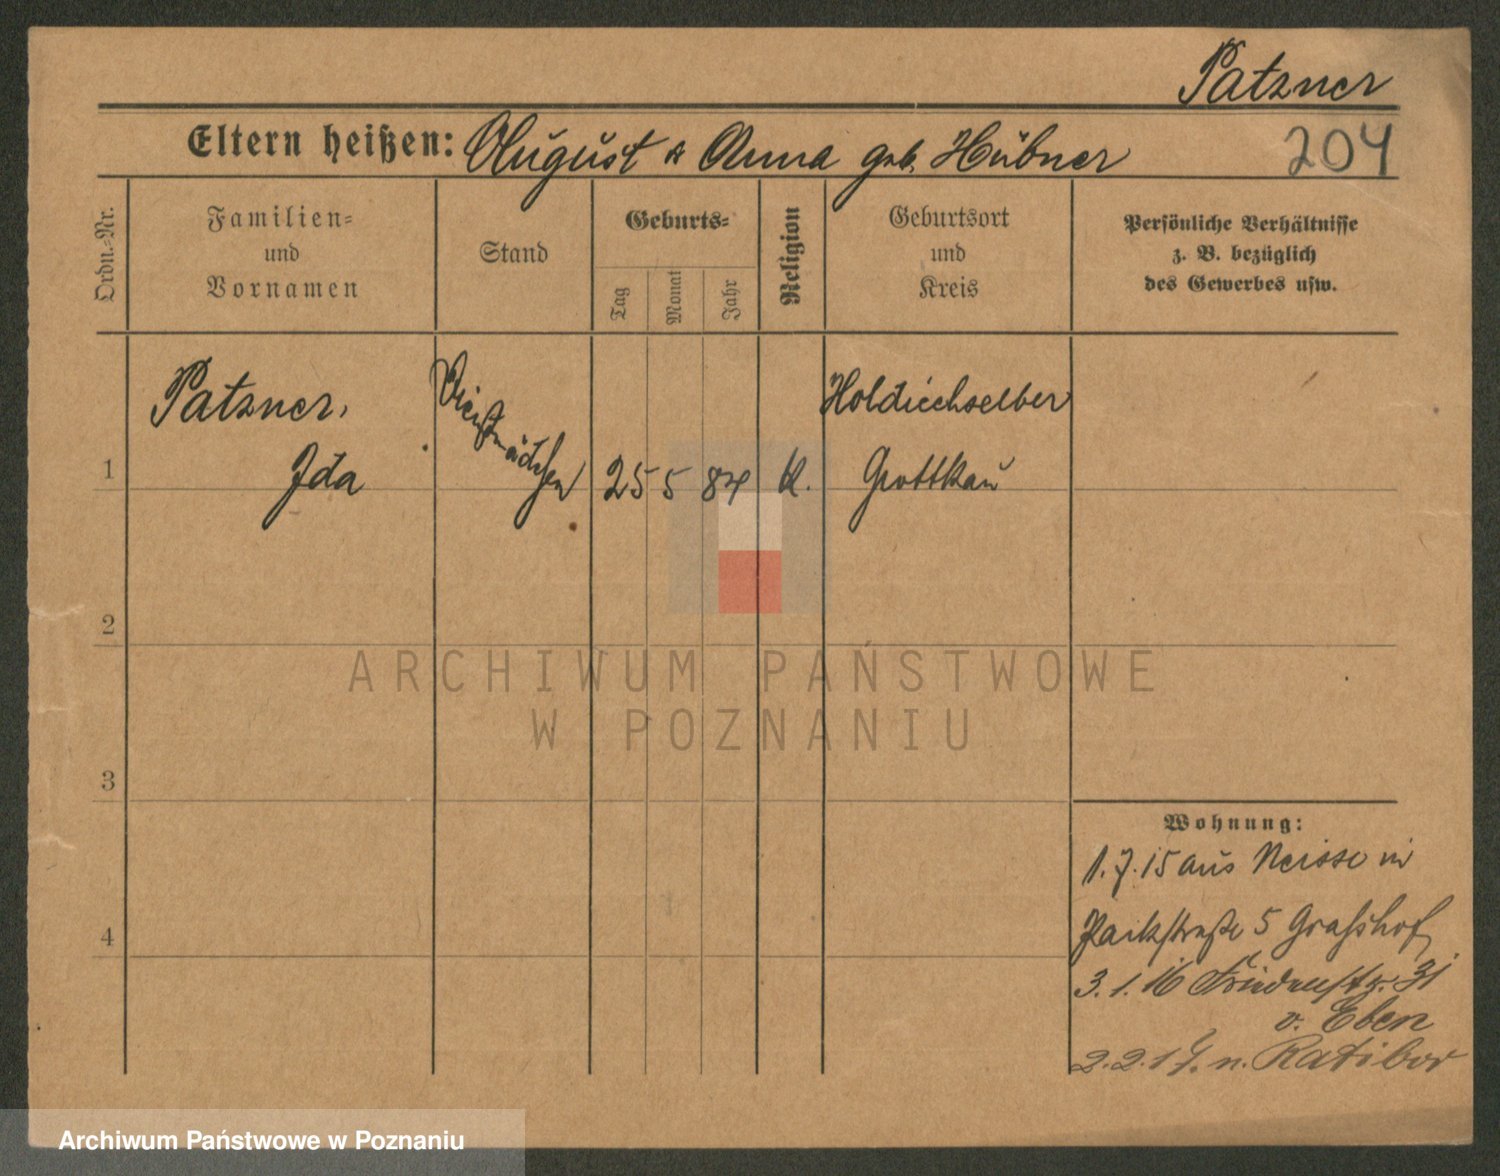 Patzner
Eltern heißen: August & Anna geb. Hübner
204
Ordn.=Nr.
Familien=
und
Vornamen
Stand
Geburts=
Tag
Monat
Jahr
Religion
Geburtsort
und
Kreis
Persönliche Verhältnisse
z. B. bezüglich
des Gewerbes usw.
1
Patzner,
Ida
Dienstmädchen
25 5 84 k.
Grottkau
2
3
4
Wohnung:
1.7.15 aus Neisse in
Parkstraße 5 Grashof
3.1.16 Friedenstr. 31
v. Eben
2.2.17. n. Ratibor
ARCHIWUM PAŃSTWOWE
W POZNANIU
Archiwum Państwowe w Poznaniu